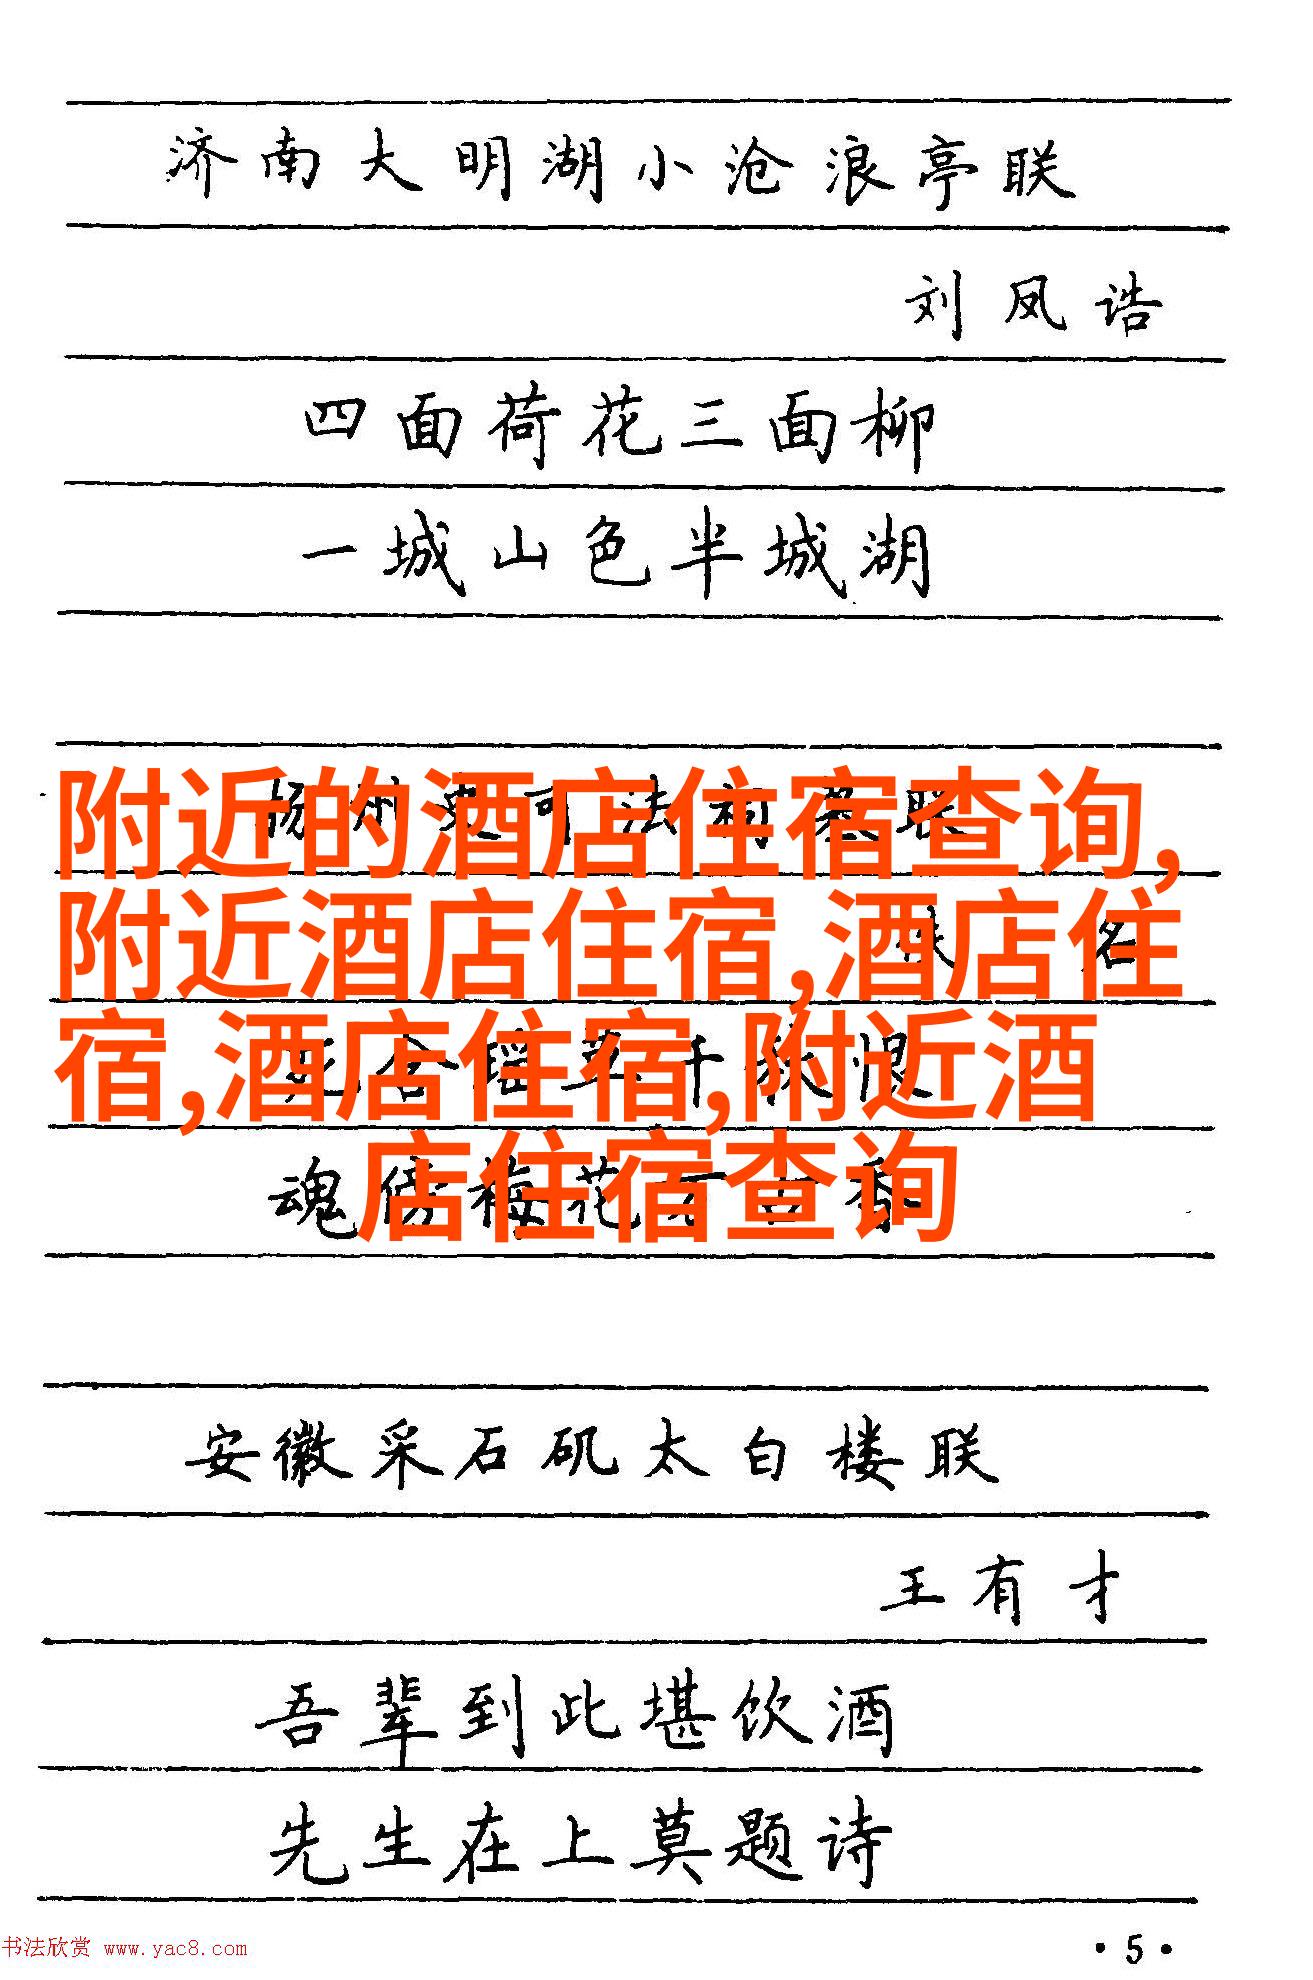 济南大明湖小沧浪亭联
刘凤诰
四面荷花三面柳
一城山色半城湖
附近的酒店住宿查询,
附近酒店住宿,酒店住
宿,酒店住宿,附近酒
店住宿查询
名
魂傍梅花
安徽采石矶太白楼联
王有才
吾辈到此堪饮酒
先生在上莫题诗
书法欣赏 www.yac8.com
·5·